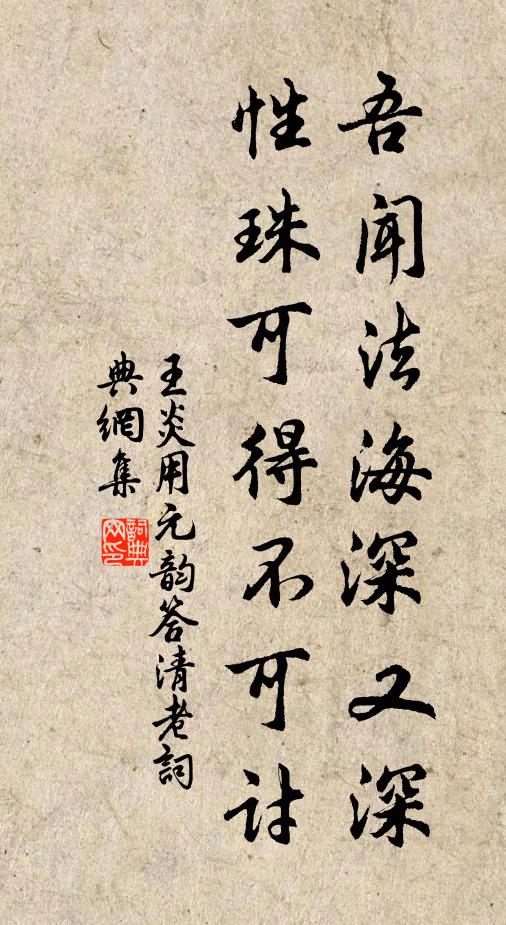 吾闻法海深又深
性珠可得不可讨
王炎用元韵答清老詞
典網集
詞典网印